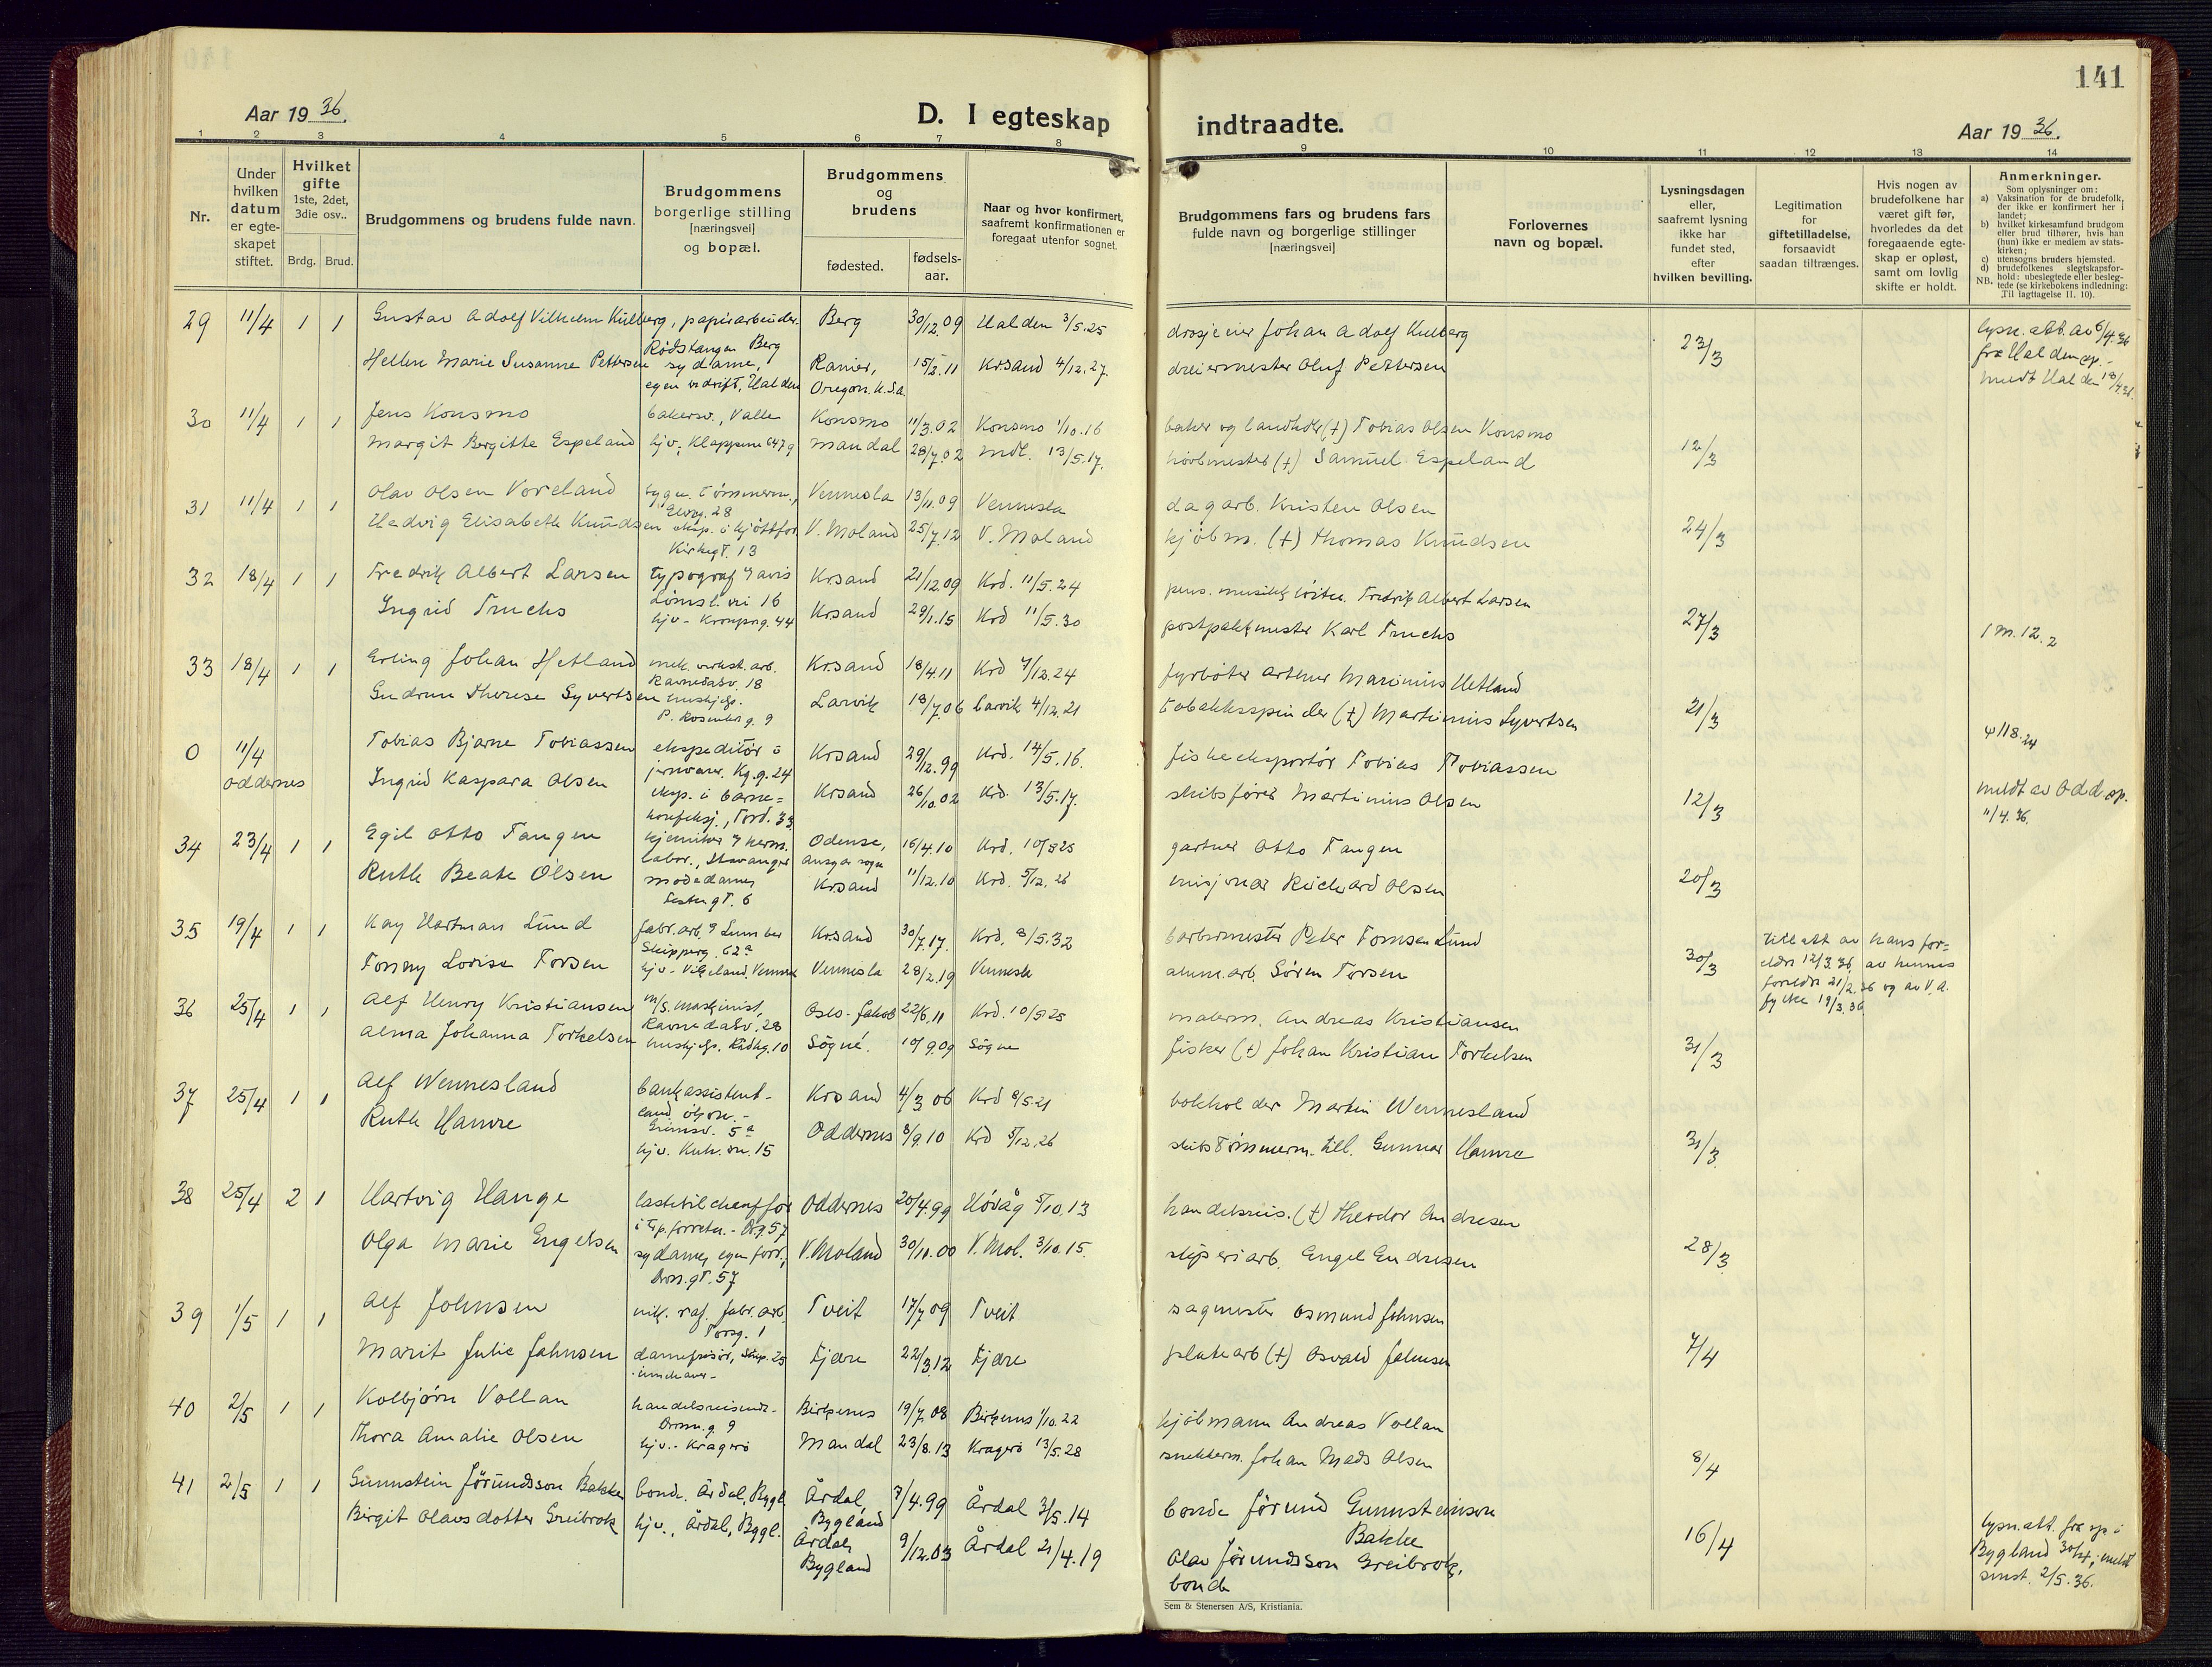 141
Aar 19 36.
D. I egteskap
indtraadte.
Aar 19 36.
1 2 3 4 5 6 7 8 9 10 11 12 13 14
Nr.
Under hvilken datum er egte-skapet stiftet.
Hvilket gifte 1ste, 2det, 3die osv..
Brdg. Brud.
Brudgommens og brudens fulde navn.
Brudgommens borgerlige stilling [næringsvei] og bopæl.
Brudgommens og brudens
fødested.
fødsels-aar.
Naar og hvor konfirmert, saafremt konfirmationen er foregaat utenfor sognet.
Brudgommens fars og brudens fars fulde navn og borgerlige stillinger [næringsvei]
Forlovernes navn og bopæl.
Lysningsdagen eller, saafremt lysning ikke har fundet sted, efter hvilken bevilling.
Legitimation for giftetilladelse, forsaavidt saadan tiltrænges.
Hvis nogen av brudefolkene har været gift før, hvorledes da det foregaaende egte-skap er opløst, samt om lovlig skifte er holdt.
Anmerkninger.
Som oplysninger om:
a) Vaksination for de brudefolk, der ikke er konfirmert her i landet;
b) hvilket kirkesamfund brudgom eller brud tilhører, hvis han (hun) ikke er medlem av stats-kirken;
c) utensogns bruders hjemsted.
d) brudefolkenes slegtskapsfor-hold: ubeslegtede eller besleg-tede (se kirkebokens indledning: „Til Iagttagelse II. 10).
NB.
29 11/4 1 1 Gustav Adolf Vilhelm Kulberg, papirarbeider. Rødstangen Berg Berg 30/12.09 Halden 3/5.25 drosjeeier Johan Adolf Kulberg 23/3
Hellen Marie Susanne Pettersen sydame, egen bedrift, Halden Ranier, Oregon. U.S.a. 15/2.11 Krsand 4/12.27. dreiermester Oluf Pettersen
lysn. att. av 6/4.36 fra Halden sp. - meldt Halden
30 11/4 1 1 Jens Konsmo bakersv., Valle Konsmo 11/3.02 Konsmo 1/10.16 baker og landhdl (†) Tobias Olsen Konsmo 12/3
Margit Bergitte Espeland hjv., Klappene 647 g Mandal 28/7.02 Mdl. 13/5.17. (†) Samuel Espeland
31 11/4 1 1 Olav Olsen Voreland bygn. tømmerm., Elveg. 28 Vennesla 13/11.09 Vennesla dagarb. Kristen Olsen 24/3
Hedvig Elisabeth Knudsen eksp. i kjøttforr. Kirkegt. 13 V. Moland 25/7.12 V. Moland kjøbm. (†) Thomas Knudsen
32 18/4 1 1 Fredrik Albert Larsen typograf i avis Krsand 21/12.09 Krd. 11/5.24 pens. musikkløitn. Fredrik Albert Larsen 27/3
Ingrid Fuchs hjv - Kronprg. 44 Krsand 29/1.15 Krd 11/5.30 postpakkmester Karl Fuchs
1 m. 12.2
33 18/4 1 1 Erling Johan Hetland mek. verkst. arb. Ravnedalsv. 18 Krsand 18/4.11 Krd 7/12.24 fyrbøter Artur Marinius Hetland 21/3
Gudrun Therese Syvertsen hushjelp. P. Rosenkr. g. 9 Larvik 18/7.06 Larvik 4/12.21 tobakksspinder (†) Martinius Syvertsen
0 11/4 Oddernes Tobias Bjarne Tobiassen ekspeditør i jernvarer, Kg. g. 24 Krsand 29/12.99 Krd. 14/5.16. fiskeeksportør Tobias Tobiassen 12/3
Ingrid Kaspara Olsen eksp. i barne= konfeksj., Tord. 33 Krsand 26/10.02 Krd. 13/5.17. skibsfører Martinius Olsen
meldt av Odd sp. 11/4.36.
34 23/4 1 1 Egil Otto Tangen kjemiker i herm. labor., Stavanger Odense, Ansgar sogn 16/4.10 Krd. 10/5.25 gartner Otto Tangen 20/3
Ruth Beate Olsen motedame, Festn gt. 6 Krsand 11/12.10 Krd. 5/12.26 misjonær Richard Olsen
35 19/4 1 1 Kay Hartman Lund fabr. arb. Skipperg. 62a Krsand 30/7.17. Krd. 8/5.32 barbermester Peter Tomsen Lund 30/3
Tonny Lovise Torsen hjv - Vigeland, Vennesla Vennesla 28/2.19 Vennesla alum. arb. Søren Torsen
till att av hans for= eldre 12/3.36, av hennes foreldre 21/2.36 og av V.A. fylke 19/3.36
36 25/4 1 1 Alf Henry Kristiansen m/s. maskinist, Ravnedalsv. 28 Oslo - Jakob 22/6.11 Krd. 10/5.25 malerm. Andreas Kristiansen 31/3
Alma Johanna Torkelsen hushjelp. Rådhg. 10 Søgne. 10/9.09 Søgne fisker (†) Johan Kristian Torkelsen
37 25/4 1 1 Alf Wennesland bankassistent - Grimsv. 5a Krsand 4/3 06 Krd 8/5.21 bokholder Martin Wennesland 31/3
Ruth Hamre hjv. Kuh. vn. 15 Oddernes 8/9.10 Krd 5/12.26 skibstømmerm. till. Gunnar Hamre
38 25/4 2 1 Hartvig Hauge lastebilchauffør i eksp. forretn. - Drg 57 Oddernes 20/4.99 Høvåg 5/10.13 handelsreis. (†) Theodor Andresen 28/3
Olga Marie Engelsen sydame, egen forr., Dron. gt. 57 V. Moland 30/11.00 V. Mol. 3/10.15. sliperiarb. Engel Endresen
39 1/5 1 1 Alf Johnsen nik. raf. fabr. arb. Torsg. 1 Tveit 17/7 09 Tveit sagmester Osmund Johnsen 7/4
Marit Julie Johnsen damefrisør, Skip. 25 innehaver - Fjære 22/3.12 Fjære platearb (†) Osvald Johnsen
40 2/5 1 1 Kolbjørn Vollan handelsreisende - Dronn. g. 9 Birkenes 19/7.08 Birkenes 1/10.22 kjøbmann Andreas Vollan 8/4
Thora Amalie Olsen hjv. - Kragerø Mandal 23/8.13 Kragerø 13/5.28 snekkerm. Johan Mads Olsen
41 2/5 1 1 Gunnstein Jørundsson Bakke bonde. Årdal, Bygl. Årdal, Bygland 7/4.99 Årdal 3/5.14 bonde Jørund Gunnsteinson Bakke 16/4
Birgit Olavsdotter Greibrok hjv., Årdal, Byggl. Årdal, Bygland 9/12.03 Årdal 21/4.19 Olav Jørundsson Greibrok, bonde
lysn. att. fra sp i Bygland 30/4; meldt smst. 2/5.36.
Sem & Stenersen A/S, Kristiania.